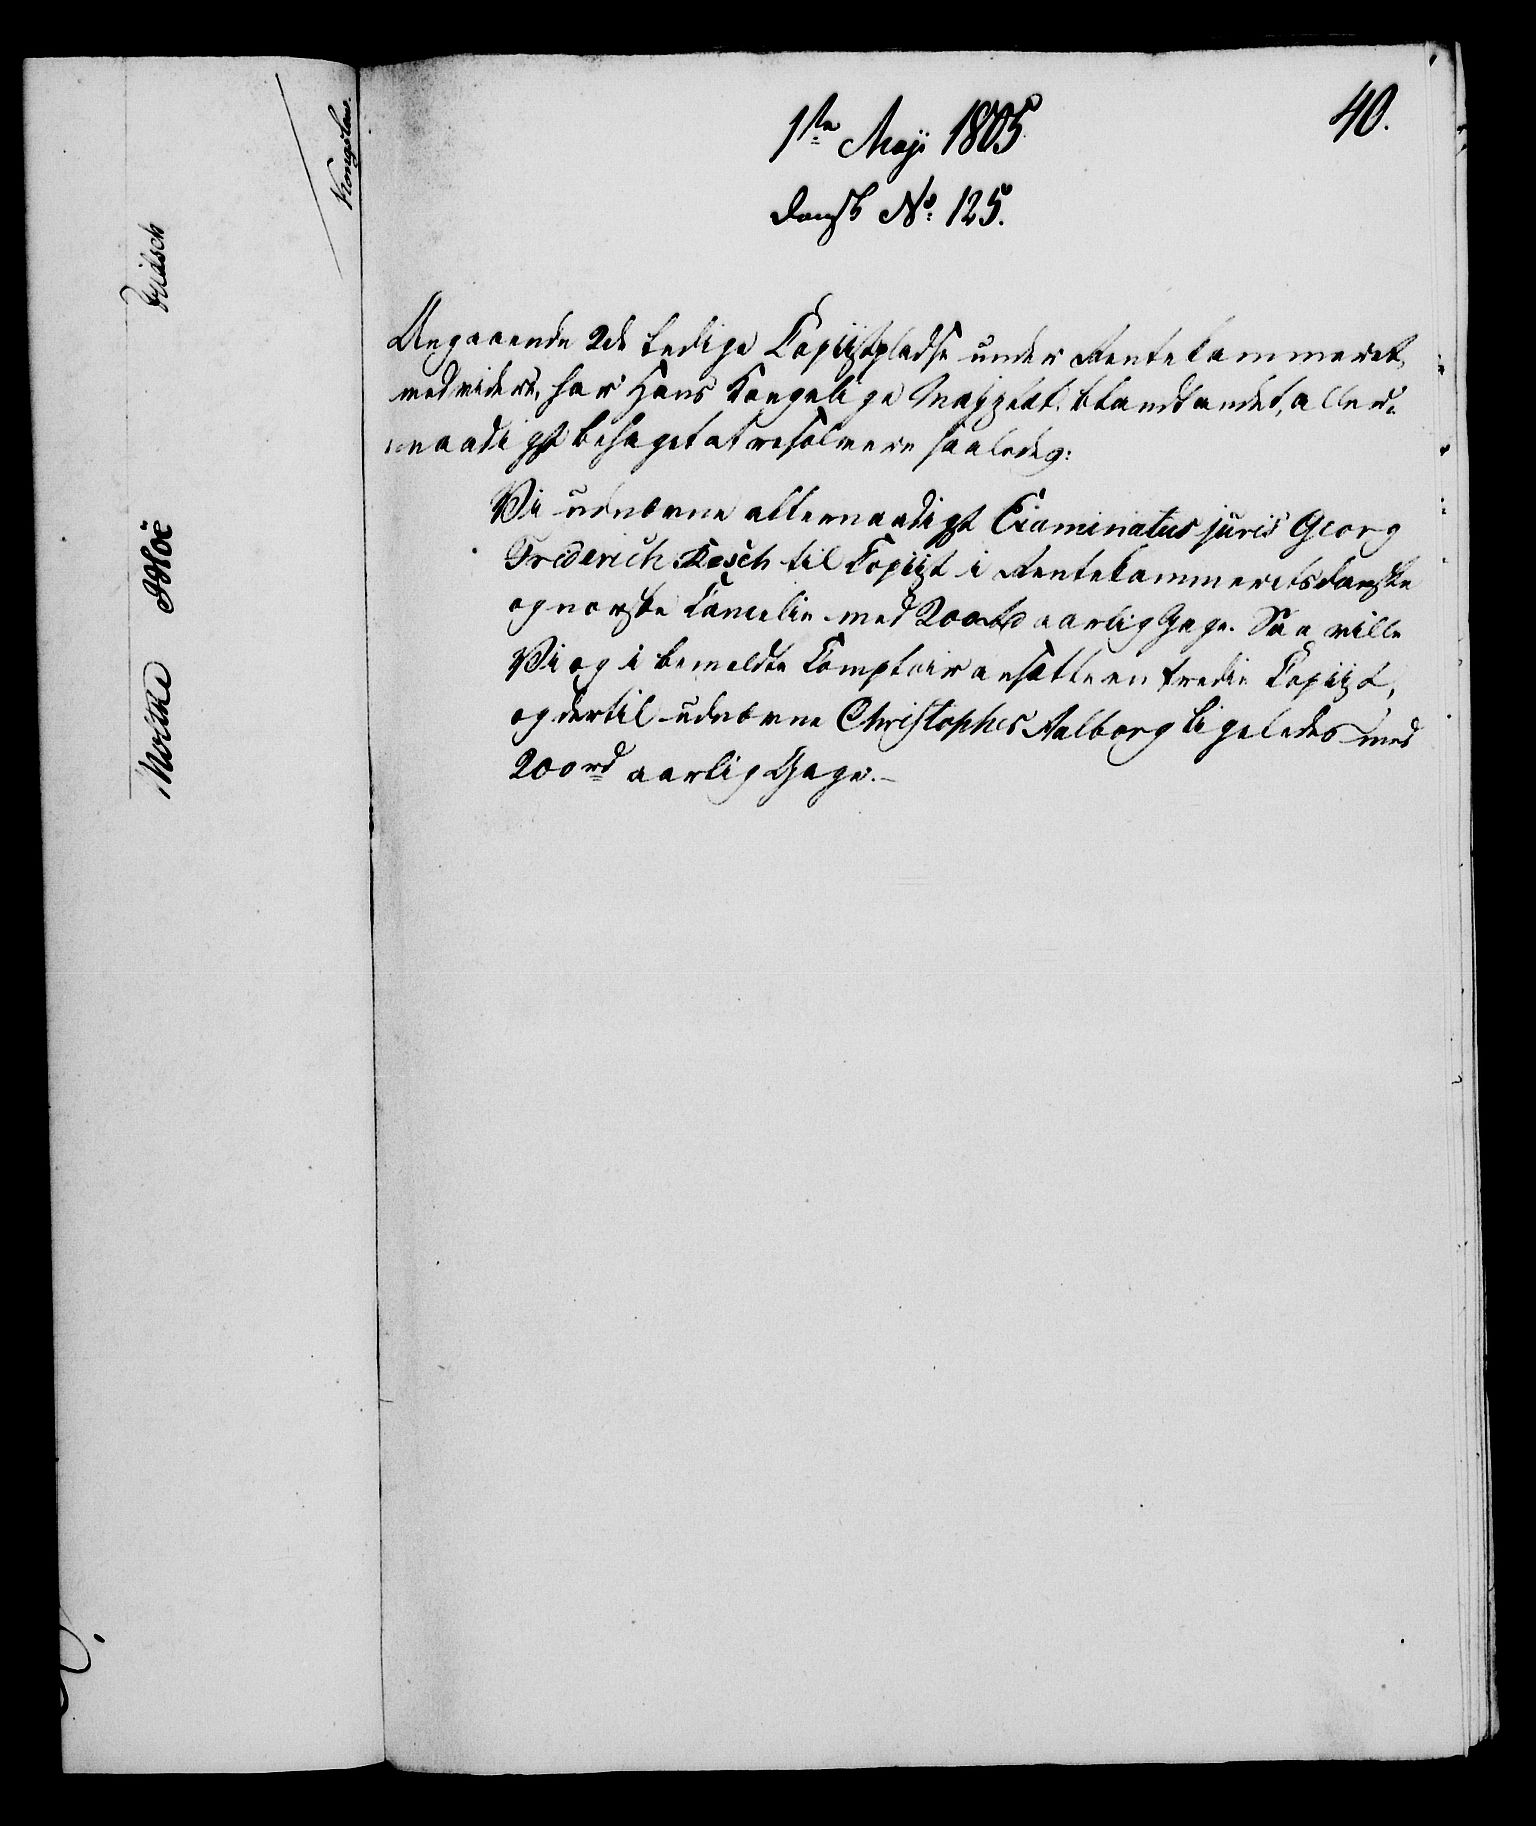 40.
1ste Maji 1805
dansk No. 125.
Angaaende 2de ledige Copiistpladse under Rentekammeret,
med videre, har Hans Kongelige Majestet blandt andet, aller-
naadigst behaget at resolvere saaledes:
Vi udnævne allernaadigst Examinatus juris Georg
Frederich Resch til Copiist i Rentekammerets danske
og norske Cancelie med 200 rd aarlig Gage. Saa ville
Vi og i bemeldte Comptoir ansætte en tredie Copiist,
og dertil udnævne Christopher Aalborg ligeledes med
200 rd aarlig Gage.-
Moltke